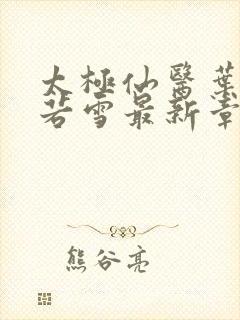 太極仙醫葉
若雪最新章
熊谷亮